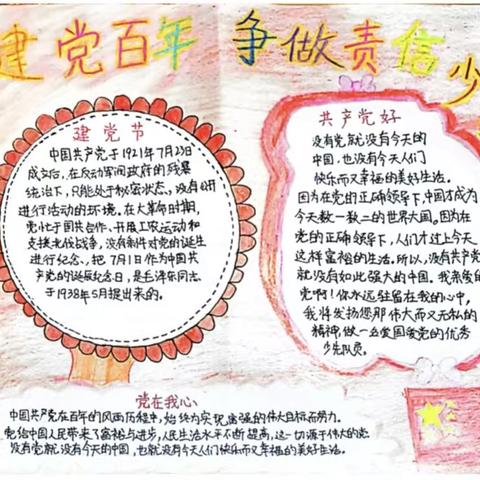 建党百年 争做责信少
建党节
中国共产党于1921年7月23日
成立后,在反动军阀政府的残暴
统治下,只能处于秘密状态,没有公开
进行活动的环境。在大革命时期,
党忙于国共合作、开展工农运动和
支援北伐战争,没有条件对党的诞生
进行纪念,把7月1日作为中国共
产党的诞辰纪念日,是毛泽东同志
于1938年5月提出来的。
共产党好
没有党就没有今天的
中国,也没有今天人们
快乐而又幸福的美好生活。
因为在党的正确领导下,中国才成为
今天数一数二的世界大国。因为在
党的正确领导下,人们才过上今天
这样富裕的生活。所以,没有共产党
就没有如此强大的中国。我亲爱的
党啊!你永远驻留在我的心中,
我将发扬您那伟大而又无私的
精神,做一名爱国爱党的优秀
少先队员。
党在我心
中国共产党在百年的风雨历程中,始终为实现富强的伟大目标而努力。
党给中国人民带来了富裕与进步,人民生活水平不断提高,这一切源于伟大的党。
没有党就没有今天的中国,也就没有今天人们快乐而又幸福的美好生活。